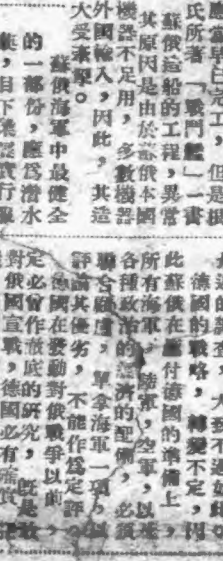 氏所著「戰鬥艦」一書
蘇俄造船的工程，異常
其原因是由於蘇俄本國
機器不足用，多數機器
外國輸入，因此，其造
大受牽累。
蘇俄海軍中最健全
的一部份，應爲潛水
艇，目下
德國的戰略，轉變不定，因
此蘇俄在應付德國的準備上，
所有海軍，陸軍，空軍，以及
各種政治的經濟的配備，必須
聯合顧慮，單拿海軍一項，以
評論其優劣，不能作爲定評。
德國在發動對俄戰爭以前，
定必曾作澈底的研究，既是敢
對俄國宣戰，德國必有